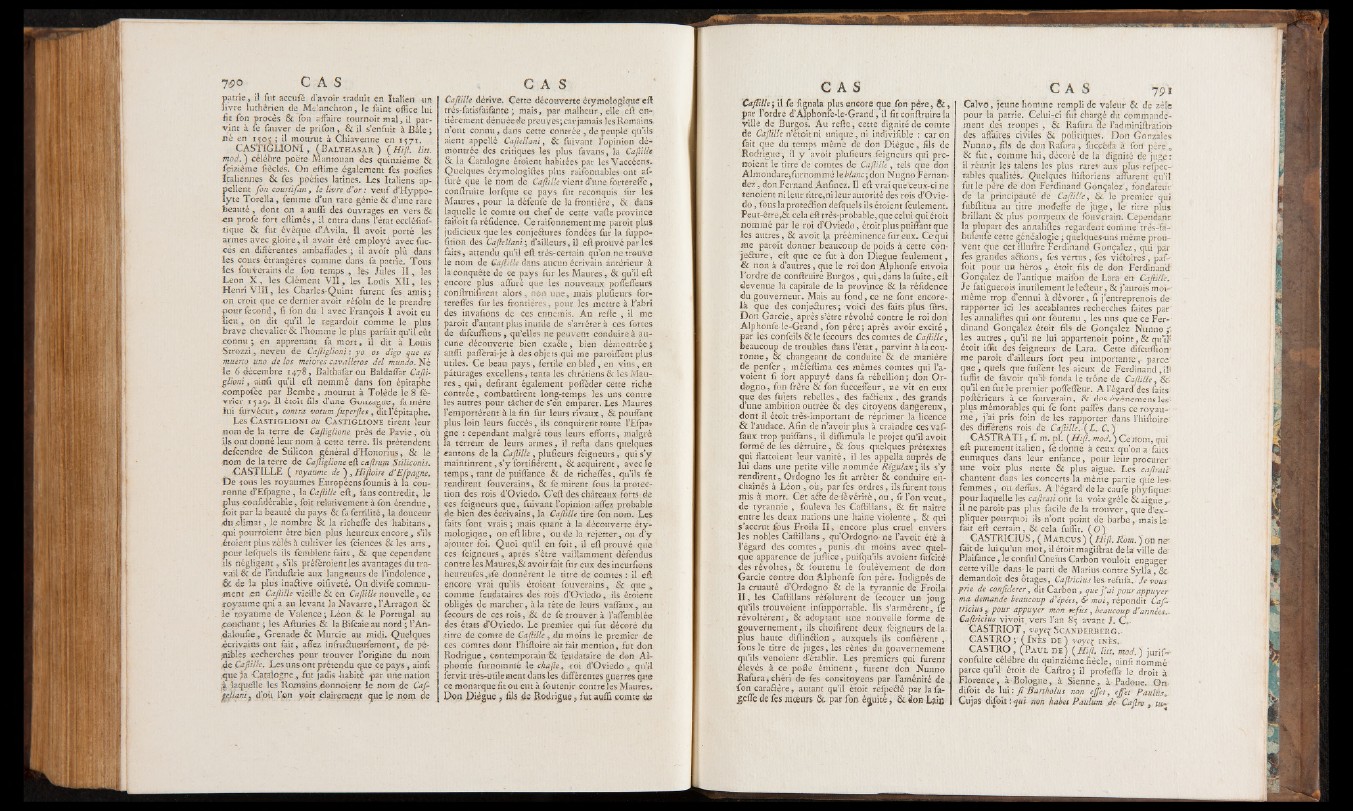 790 C A S
patrie, il fut accusé d'avoir traduit en Italien un
livre luthérien de Mélanchton, le saint office lui
fit son procès & son affaire tournoit mal, il par-
vint à se sauver de prison, & il s'enfuit à Bâle;
né en 1503; il mourut à Chiavenne en 1571.
CASTIGLIONI, (BALTHASAR) (Hist. litt.
mod.) célèbre poëte Mantouan des quinzième &
seizième siècles. On estime également ses poésies
Italiennes & ses poésies latines. Les Italiens ap-
pellent son courtisan, le livre d'or: veuf d'Hyppo-
lyte Torella, femme d'un rare génie & d'une rare
beauté, dont on a aussi des ouvrages en vers &
en prose fort estimés, il entra dans l'état ecclésias-
tique & fut évêque d'Avila. Il avoit porté les
armes avec gloire, il avoit été employé avec suc-
cès en différentes ambassades; il avoit plû dans
les cours étrangères comme dans sa patrie. Tous
les souverains de son temps, les Jules II, les
Leon X, les Clément VII, les Louis XII, les
Henri VIII, les Charles-Quint furent ses amis;
on croit que ce dernier avoit résolu de le prendre
pour second, si son duel avec François I avoit eu
lieu, on dit qu'il le regardoit comme le plus
brave chevalier & l'homme le plus parfait qu'il eût
connu; en apprenant sa mort, il dit à Louis
Strozzi, neveu de Castiglioni: yo os digo que es
muerto uno de los meiores cavalleros del mundo. Né
le 6 décembre 1478, Balthasar ou Baldassar Casti-
glioni, ainsi qu'il est nommé dans son épitaphe
composée par Bembe, mourut à Tolède le 8 fé-
vrier 1529. Il étoit fils d'une Gonzague, sa mère
lui survécut, contra votum superstes, dit l'épitaphe.
Les CASTIGLIONI ou CASTIGLIONE tirent leur
nom de la terre de Castiglione près de Pavie, où
ils ont donné leur nom à cette terre. Ils prétendent
descendre de Stilicon général d'Honorius, & le
nom de la terre de Castiglione est castrum Stiliconis.
CASTILLE (royaume de), Histoire d'Espagne.
De tous les royaumes Européens soumis à la cou-
ronne d'Espagne, la Castille est, sans contredit, le
plus considérable, soit relativement à son étendue,
soit par la beauté du pays & sa fertilité, la douceur
du climat, le nombre & la richesse des habitans,
qui pourroient être bien plus heureux encore, s'ils
étoient plus zélés à cultiver les sciences & les arts,
pour lesquels ils semblent faits, & que cependant
ils négligent, s'ils préféroient les avantages du tra-
vail & de l'industrie aux langueurs de l'indolence,
& de la plus inactive oisiveté. On divise commu-
nément en Castille vieille & en Castille nouvelle, ce
royaume qui a au levant la Navarre, l'Arragon &
le royaume de Valence; Léon & le Portugal au
couchant; les Asturies & la Biscaie au nord; l'An-
dalousie, Grenade & Murcie au midi. Quelques
écrivains ont fait, assez infructueusement, de pé-
nibles recherches pour trouver l'origine du nom
de Castille. Les uns ont prétendu que ce pays, ainsi
que la Catalogne, fut jadis habité par une nation
à laquelle les Romains donnoient le nom de Cas-
tellani, d'où l'on voit clairement que le nom de
C A S
Castille dérive. Cette découverte étymologique est
très-satisfaisante; mais, par malheur, elle est en-
tièrement dénuée de preuves; car jamais les Romains
n'ont connu, dans cette contrée, de peuple qu'ils
aient appellé Castellani, & suivant l'opinion dé-
montrée des critiques les plus savans, la Castille
& la Catalogne étoient habitées par les Vaccéens.
Quelques étymologistes plus raisonnables ont as-
suré que le nom de Castille vient d'une forteresse,
construite lorsque ce pays fut reconquis sur les
Maures, pour la défense de la frontière, & dans
laquelle le comte ou chef de cette vaste province
faisoit sa résidence. Ce raisonnement me paroît plus
judicieux que les conjectures fondées sur la suppo-
sition des Castellani; d'ailleurs, il est prouvé par les
faits, attendu qu'il est très-certain qu'on ne trouve
le nom de Castille dans aucun écrivain antérieur à
la conquête de ce pays sur les Maures, & qu'il est
encore plus assuré que les nouveaux possesseurs
construisirent alors, non une, mais plusieurs for-
teresses sur les frontières, pour les mettre à l'abri
des invasions de ces ennemis. Au reste, il me
paroît d'autant plus inutile de s'arrêter à ces sortes
de discussions, qu'elles ne peuvent conduire à au-
cune découverte bien exacte, bien démontrée;
aussi passerai-je à des objets qui me paroissent plus
utiles. Ce beau pays, fertile en bled, en vins, en
pâturages excellens, tenta les chrétiens & les Mau-
res, qui, desirant également posséder cette riche
contrée, combattirent long-temps les uns contre
les autres pour tâcher de s'en emparer. Les Maures
l'emportèrent à la fin sur leurs rivaux, & poussant
plus loin leurs succès, ils conquirent toute l'Espa-
gne: cependant malgré tous leurs efforts, malgré
la terreur de leurs armes, il resta dans quelques
cantons de la Castille, plusieurs seigneurs, qui s'y
maintinrent, s'y fortifièrent, & acquirent, avec le
temps, tant de puissance & de richesses, qu'ils se
rendirent souverains, & se mirent sous la protec-
tion des rois d'Oviedo. C'est des châteaux forts de
ces seigneurs que, suivant l'opinion assez probable
de bien des écrivains, la Castille tire son nom. Les
faits sont vrais; mais quant à la découverte éty-
mologique, on est libre, ou de la rejetter, ou d'y
ajouter foi. Quoi qu'il en soit, il est prouvé que
ces seigneurs, après s'être vaillamment défendus
contre les Maures, & avoir fait sur eux des incursions
heureuses, se donnèrent le titre de comtes: il est
encore vrai qu'ils étoient souverains, & que,
comme feudataires des rois d'Oviedo, ils étoient
obligés de marcher, à la tête de leurs vassaux, au
secours de ces rois, & de se trouver à l'assemblée
des états d'Oviedo. Le premier qui fut décoré du
titre de comte de Castille, du moins le premier de
ces comtes dont l'histoire ait fait mention, fut don
Rodrigue, contemporain & feudataire de don Al-
phonse surnommé le chaste, roi d'Oviedo, qu'il
servit très-utilement dans les différentes guerres que
ce monarque fit ou eut à soutenir contre les Maures.
Don Diégue, fils de Rodrigue, fut aussi comte de
C A S
Castille; il se signala plus encore que son père, &,
par l'ordre d'Alphonse-le-Grand, il fit construire la
ville de Burgos. Au reste, cette dignité de comte
de Castille n'étoit ni unique, ni indivisible: car on
sait que du temps même de don Diégue, fils de
Rodrigue, il y avoit plusieurs seigneurs qui pre-
noient le titre de comtes de Castille, tels que don
Almondare, surnommé le blanc; don Nugno Fernan-
dez, don Fernand Ansinez. Il est vrai que ceux-ci ne
tenoient ni leur titre, ni leur autorité des rois d'Ovie-
do, sous la protection desquels ils étoient seulement.
Peut-être, & cela est très-probable, que celui qui étoit
nommé par le roi d'Oviedo, étoit plus puissant que
les autres, & avoit la prééminence sur eux. Ce qui
me paroît donner beaucoup de poids à cette con-
jecture, est que ce fut à don Diegue seulement,
& non à d'autres, que le roi don Alphonse envoia
l'ordre de construire Burgos, qui, dans la suite, est
devenue la capitale de la province & la résidence
du gouverneur. Mais au fond, ce ne sont encore-
là que des conjectures; voici des faits plus sûrs.
Don Garcie, après s'être révolté contre le roi don
Alphonse-le-Grand, son père; après avoir excité,
par les conseils & le secours des comtes de Castille,
beaucoup de troubles dans l'état, parvint à la cou-
ronne, & changeant de conduite & de manière
de penser, mésestima ces mêmes comtes qui l'a-
voient si fort appuyé dans sa rébellion; don Or-
dogno, son frère & son successeur, ne vit en eux
que des sujets rebelles, des factieux, des grands
d'une ambition outrée & des citoyens dangereux,
dont il étoit très-important de réprimer la licence
& l'audace. Afin de n'avoir plus à craindre ces vas-
saux trop puissans, il dissimula le projet qu'il avoit
formé de les détruire, & sous quelques prétextes
qui flattoient leur vanité, il les appella auprès de
lui dans une petite ville nommée Régulax; ils s'y
rendirent, Ordogno les fit arrêter & conduire en-
chaînés à Léon, où, par ses ordres, ils furent tous
mis à mort. Cet acte de sévérité, ou, si l'on veut,
de tyrannie, souleva les Castillans, & fit naître
entre les deux nations une haine violente, & qui
s'accrut sous Froila II, encore plus cruel envers
les nobles Castillans, qu'Ordogno ne l'avoit été à
l'égard des comtes, punis du moins avec quel-
que apparence de justice, puisqu'ils avoient suscité
des révoltes, & soutenu le soulèvement de don
Garcie contre don Alphonse son père. Indignés de
la cruauté d'Ordogno & de la tyrannie de Froila
II, les Castillans résolurent de secouer un joug
qu'ils trouvoient insupportable. Ils s'armèrent, se
révoltèrent, & adoptant une nouvelle forme de
gouvernement, ils choisirent deux seigneurs de la
plus haute distinction, auxquels ils confièrent,
sous le titre de juges, les rênes du gouvernement
qu'ils venoient d'établir. Les premiers qui furent
élevés à ce poste éminent, furent don Nunno
Rasura, chéri de ses concitoyens par l'aménité de
son caractère, autant qu'il étoit respecté par la sa-
gesse de ses mœurs & par son équité, & don Lain
C A S 791
Calvo, jeune homme rempli de valeur & de zèle
pour la patrie. Celui-ci fut chargé du commande-
ment des troupes, & Rasura de l'administration
des affaires civiles & politiques. Don Gonzales
Nunno, fils de don Rasura, succéda à son père,
& fut, comme lui, décoré de la dignité de juge:
il réunit les talens les plus rares aux plus respec-
tables qualités. Quelques historiens assurent qu'il
fut le père de don Ferdinand Gonçalez, fondateur
de la principauté de Castille, & le premier qui
substitua au titre modeste de juge, le titre plus
brillant & plus pompeux de souverain. Cependant
la plupart des annalistes regardent comme très-fa-
buleuse cette généalogie; quelques-uns même prou-
vent que cet illustre Ferdinand Gonçalez, qui par
ses grandes actions, ses vertus, ses victoires, pas-
soit pour un héros, étoit fils de don Ferdinand
Gonçalez de l'antique maison de Lara en Castille.
Je fatiguerois inutilement le lecteur, & j'aurois moi-
même trop d'ennui à dévorer, si j'entreprenois de
rapporter ici les accablantes recherches faites par
les annalistes qui ont soutenu, les uns que ce Fer-
dinand Gonçalez étoit fils de Gonçalez Nunno;
les autres, qu'il ne lui appartenoit point, & qu'il
étoit issu des seigneurs de Lara. Cette discussion
me paroît d'ailleurs fort peu importante, parce
que, quels que fussent les aïeux de Ferdinand, il
suffit de savoir qu'il fonda le trône de Castille, &
qu'il en fut le premier possesseur. A l'égard des faits
postérieurs à ce souverain, & des événemens les
plus mémorables qui se sont passés dans ce royau-
me, j'ai pris soin de les rapporter dans l'histoire
des différens rois de Castille. (L. C.)
CASTRATI, s. m. pl. (Hist. mod.) Ce nom, qui
est purement italien, se donne à ceux qu'on a faits
eunuques dans leur enfance, pour leur procurer
une voix plus nette & plus aigue. Les castrati
chantent dans les concerts la même partie que les
femmes, ou dessus. A l'égard de la cause physique
pour laquelle les castrati ont la voix grêle & aigue,
il ne paroît pas plus facile de la trouver, que d'ex-
pliquer pourquoi ils n'ont point de barbe, mais le
fait est certain, & cela suffit. (O)
CASTRICIUS, (MARCUS) (Hist. Rom.) on ne
sait de lui qu'un mot, il étoit magistrat de la ville de
Plaisance, le consul Cneius Carbon vouloit engager
cette ville dans le parti de Marius contre Sylla, &
demandoit des ôtages, Castricius les refusa. Je vous
prie de considérer, dit Carbon, que j'ai pour appuyer
ma demande beaucoup d'épées, & moi, répondit Cas-
tricius, pour appuyer mon refus, beaucoup d'années.
Castricius vivoit vers l'an 85 avant J. C.
CASTRIOT, voyez SCANDERBERG.
CASTRO; (INÈS DE) voyez INÈS.
CASTRO, (PAUL DE) (Hist. litt. mod.) juris-
consulte célèbre du quinzième siècle, ainsi nommé
parce qu'il étoit de Castro; il professa le droit à
Florence, à Bologne, à Sienne, à Padoue. On
disoit de lui: si Bartholus non esset, esset Paulus.
Cujas disoit: qui non habet Paulum de Castro, tu-